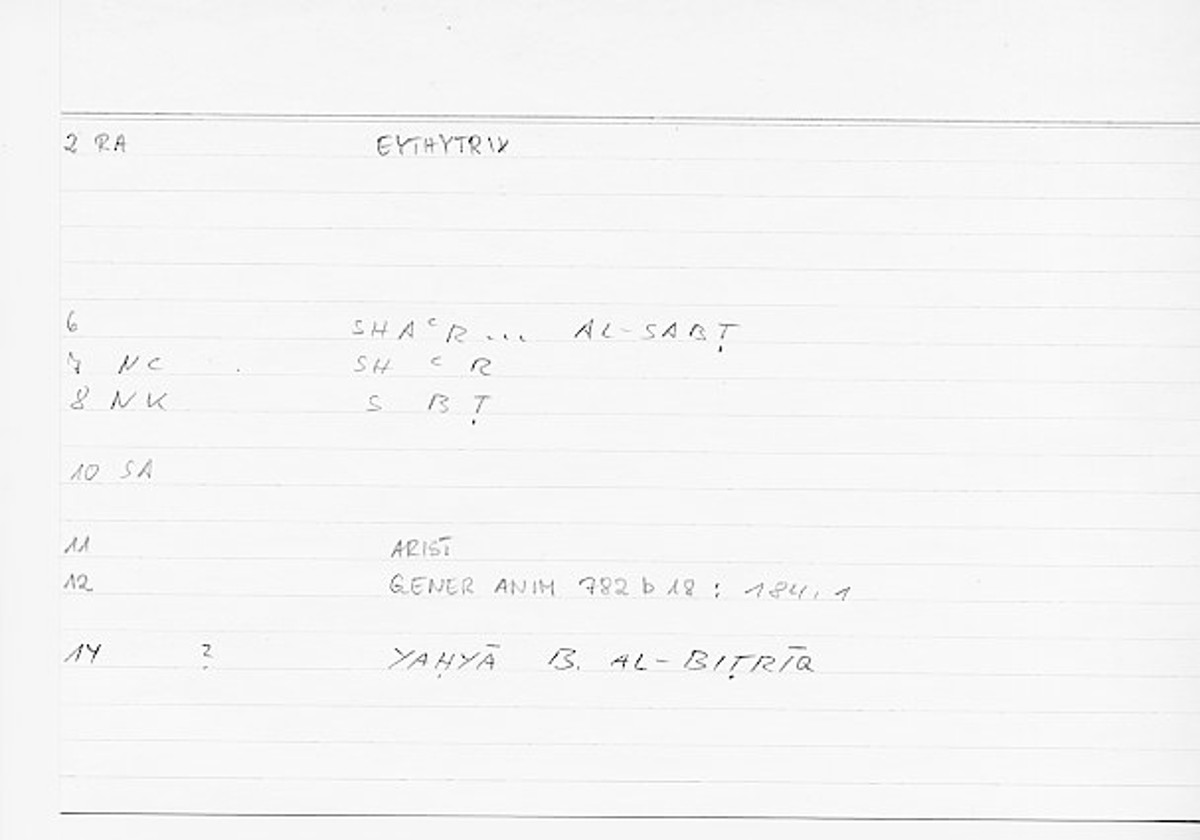 2 RA EYTHYTRIX
6 SHAᶜR ... AL-SABṬ
7 NC SH ᶜ R
8 NK S B Ṭ
10 SA
11 ARIST
12 GENER ANIM 782 b 18 : 184, 1
14 ? YAḤYĀ B. AL-BIṬRĪQ